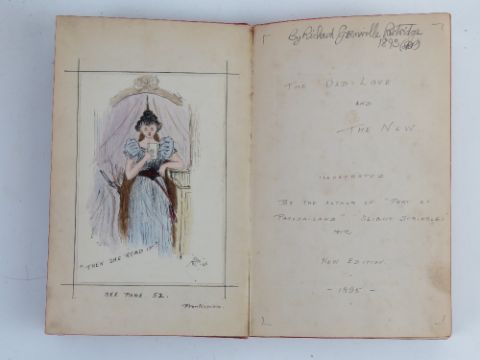 "THEN SHE READ IT"
SEE PAGE 52.
Frontispiece.
By Richard Grenville Partridge
1895
THE OLD LOVE
AND
THE NEW
ILLUSTRATED
BY THE AUTHOR OF "PORT OF
SLIGHT SCRIBBLES"
ETC
NEW EDITION.
- 1895 -